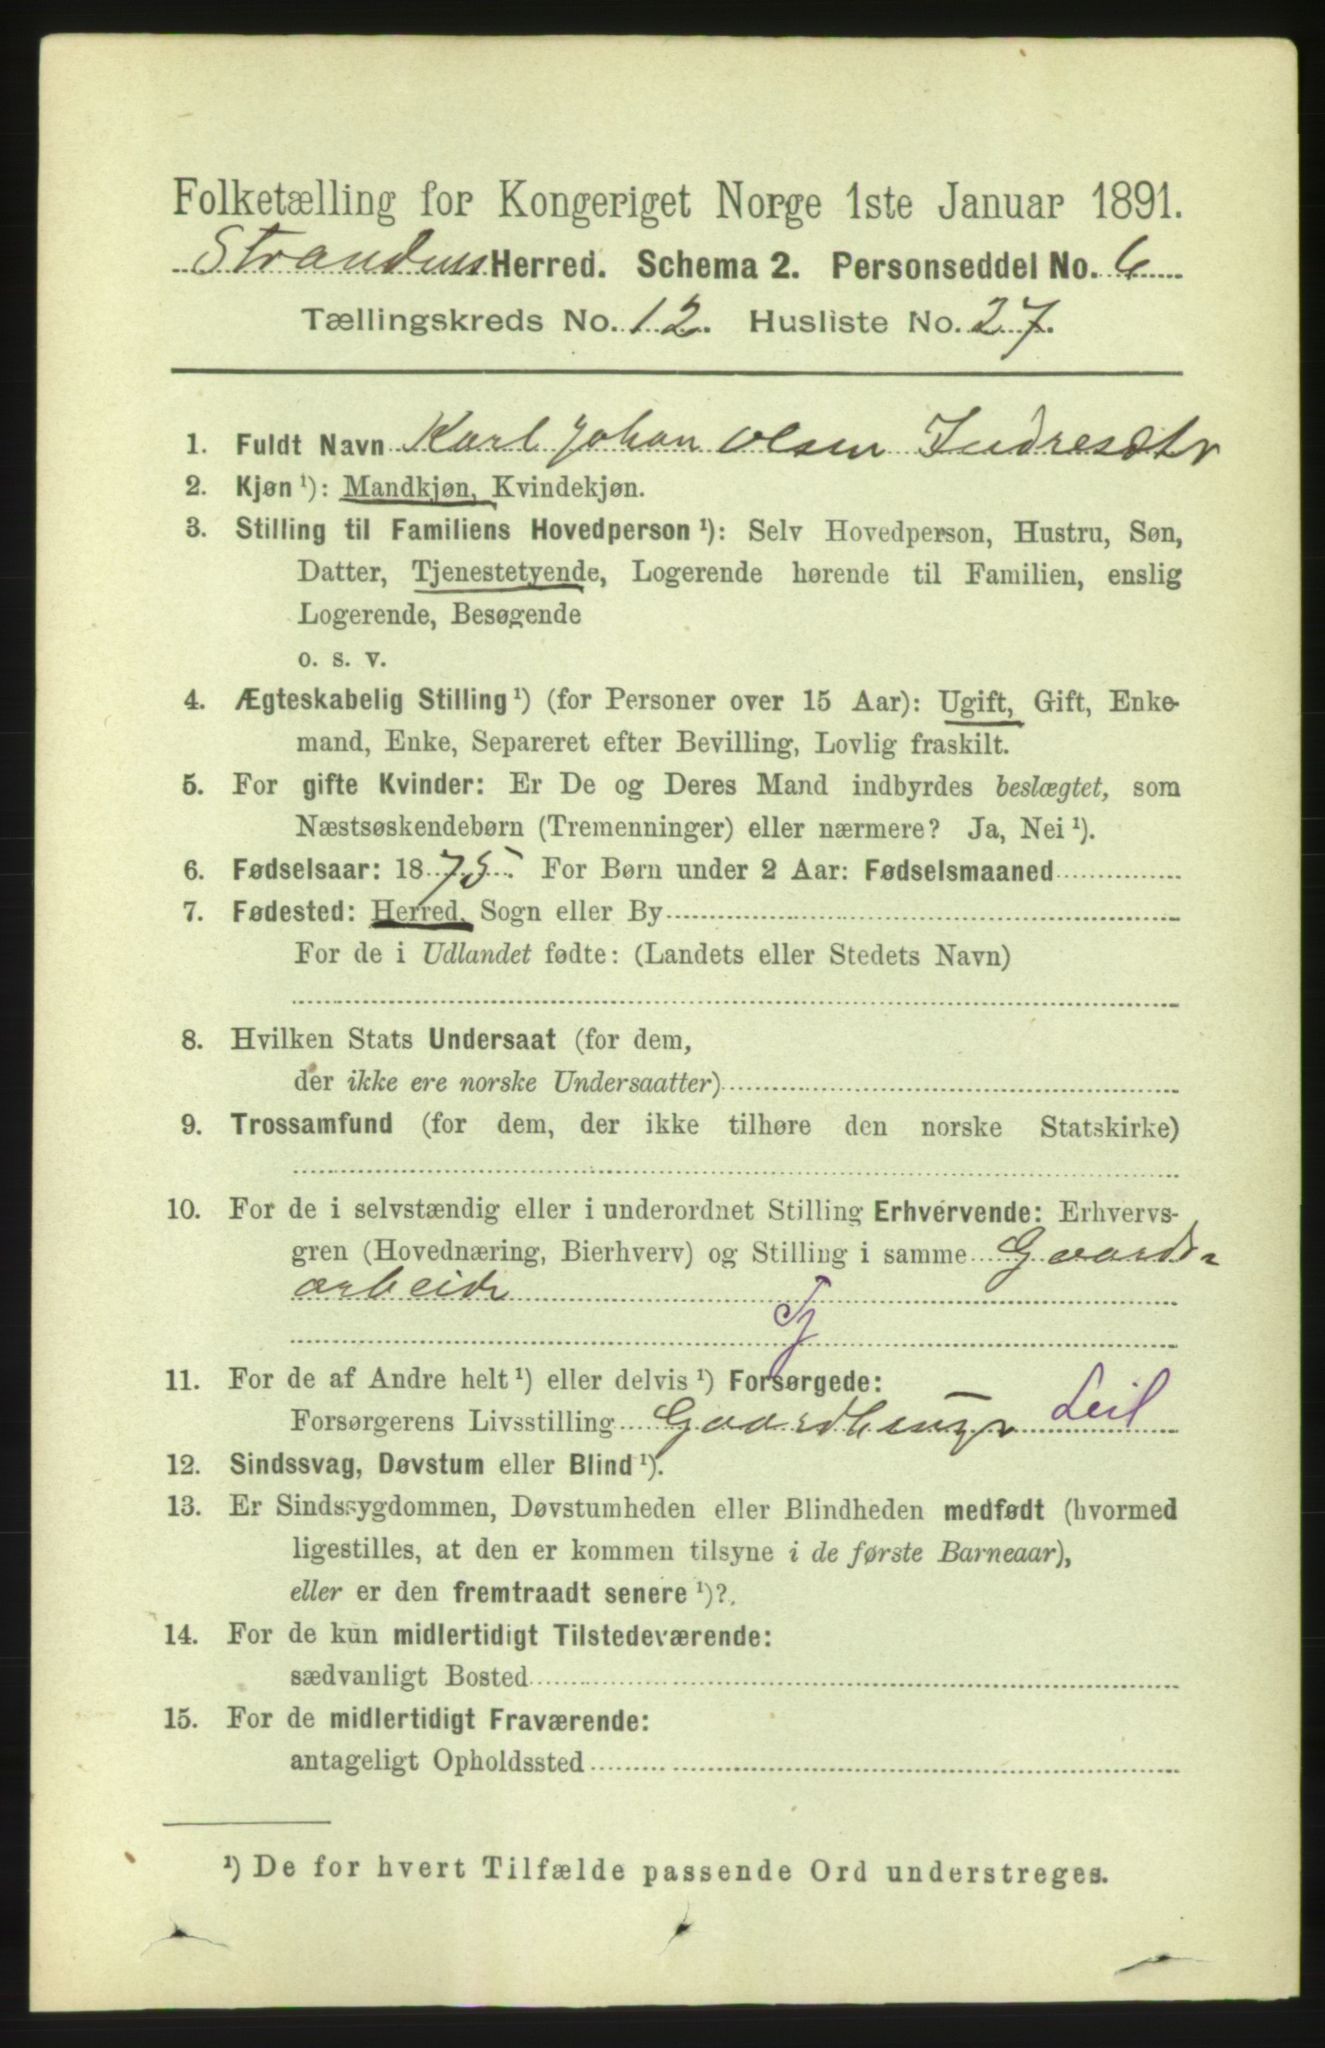 Folketælling for Kongeriget Norge 1ste Januar 1891.
Strandens Herred. Schema 2. Personseddel No. 6
Tællingskreds No. 12. Husliste No. 27.
1. Fuldt Navn Karl Johan Olsen Indresætr
2. Kjøn ¹): Mandkjøn, Kvindekjøn.
3. Stilling til Familiens Hovedperson ¹): Selv Hovedperson, Hustru, Søn,
Datter, Tjenestetyende, Logerende hørende til Familien, enslig
Logerende, Besøgende
o. s. v.
4. Ægteskabelig Stilling ¹) (for Personer over 15 Aar): Ugift, Gift, Enke-
mand, Enke, Separeret efter Bevilling, Lovlig fraskilt.
5. For gifte Kvinder: Er De og Deres Mand indbyrdes beslægtet, som
Næstsøskendebørn (Tremenninger) eller nærmere? Ja, Nei ¹).
6. Fødselsaar: 1875. For Børn under 2 Aar: Fødselsmaaned
7. Fødested: Herred, Sogn eller By
For de i Udlandet fødte: (Landets eller Stedets Navn)
8. Hvilken Stats Undersaat (for dem,
der ikke ere norske Undersaatter)
9. Trossamfund (for dem, der ikke tilhøre den norske Statskirke)
10. For de i selvstændig eller i underordnet Stilling Erhvervende: Erhvervs-
gren (Hovednæring, Bierhverv) og Stilling i samme Gaards-
arbeide
Tj
11. For de af Andre helt ¹) eller delvis ¹) Forsørgede:
Forsørgerens Livsstilling Gaardbruger Leil
12. Sindssvag, Døvstum eller Blind ¹).
13. Er Sindssygdommen, Døvstumheden eller Blindheden medfødt (hvormed
ligestilles, at den er kommen tilsyne i de første Barneaar),
eller er den fremtraadt senere ¹)?.
14. For de kun midlertidigt Tilstedeværende:
sædvanligt Bosted
15. For de midlertidigt Fraværende:
antageligt Opholdssted
¹) De for hvert Tilfælde passende Ord understreges.